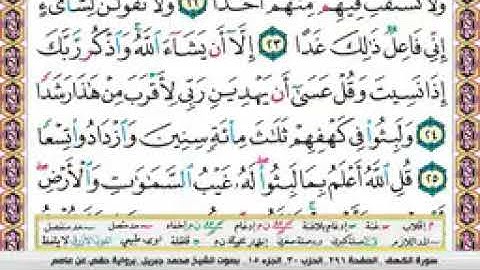 وَلَا تَسْتَفْتِ فِيهِم مِّنْهُمْ أَحَدًا ٢٢ وَلَا تَقُولَنَّ لِشَاىْءٍ
إِنِّى فَاعِلٌ ذَٰلِكَ غَدًا ٢٣ إِلَّآ أَن يَشَآءَ ٱللَّهُ وَٱذْكُر رَّبَّكَ
إِذَا نَسِيتَ وَقُلْ عَسَىٰٓ أَن يَهْدِيَنِ رَبِّى لِأَقْرَبَ مِنْ هَٰذَا رَشَدًا
٢٤ وَلَبِثُوا۟ فِى كَهْفِهِمْ ثَلَٰثَ مِا۟ئَةٍ سِنِينَ وَٱزْدَادُوا۟ تِسْعًا
٢٥ قُلِ ٱللَّهُ أَعْلَمُ بِمَا لَبِثُوا۟ لَهُۥ غَيْبُ ٱلسَّمَٰوَٰتِ وَٱلْأَرْضِ
سورة الكهف . الصفحة ٢٩٦ . الحزب ٣٠ . الجزء ١٥ . بصوت الشيخ محمد جبريل . برواية حفص عن عاصم